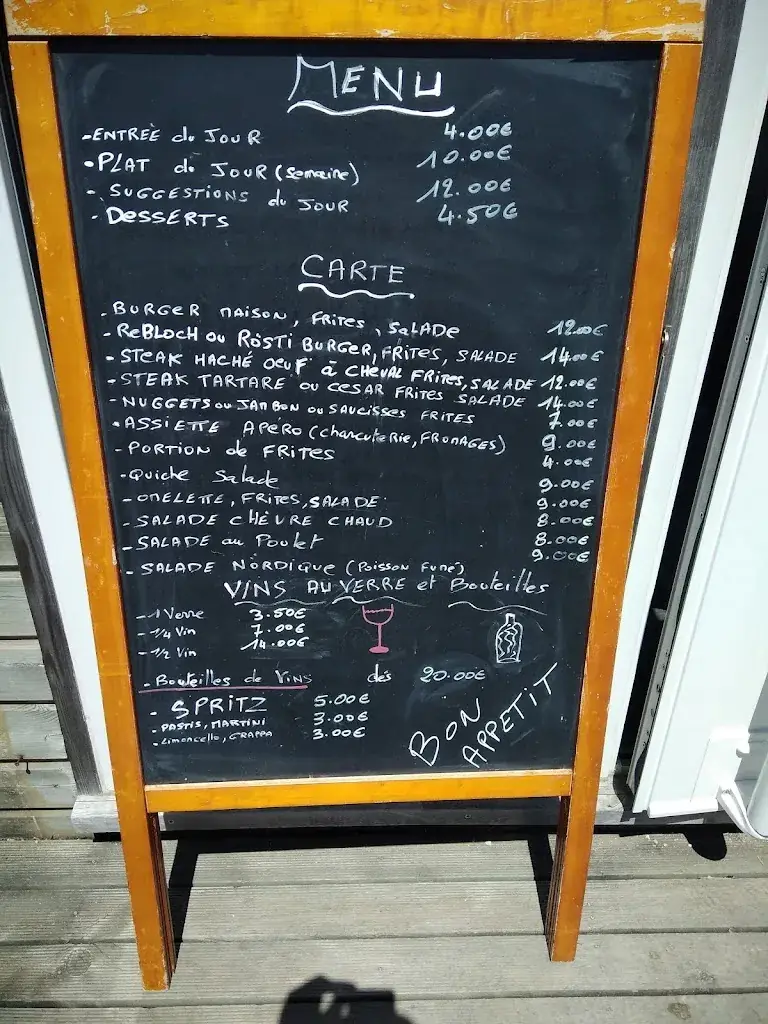 MENU
-ENTREÉ du JOUR 4.00€
-PLAT du JOUR (semaine) 10.00€
- SUGGESTIONS du JOUR 12.00€
- DESSERTS 4.50€
CARTE
- BURGER MAISON, FRITES, SALADE 12.00€
- REBLOCH ou RÖSTI BURGER, FRITES, SALADE 14.00€
- STEAK HACHÉ OEUF à CHEVAL FRITES, SALADE 12.00€
- STEAK TARTARE ou CESAR FRITES SALADE 14.00€
- NUGGETS ou JAMBON ou SAUCISSES FRITES 7.00€
- ASSIETTE APERO (charcuterie, FROMAGES) 9.00€
- PORTION de FRITES 4.00€
- Quiche Salade 9.00€
- OMELETTE, FRITES, SALADE 9.00€
- SALADE CHÈVRE CHAUD 8.00€
- SALADE au Poulet 8.00€
- SALADE NORDIQUE (Poisson Fumé) 9.00€
VINS AU VERRE et Bouteilles
- 1 Verre 3.50€
- 1/4 Vin 7.00€
- 1/2 Vin 14.00€
- Bouteilles de Vins dès 20.00€
- SPRITZ 5.00€
- PASTIS, MARTINI 3.00€
- Limoncello, GRAPPA 3.00€
BON APPETIT